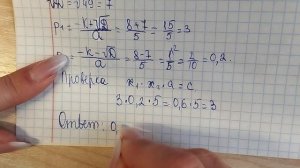 √D = √49 = 7
P₁ = (-k+√D)/a = (8+7)/5 = 15/5 = 3
= (-k-√D)/a = (8-7)/5 = 1/5 = 2/10 = 0,2.
Проверка x₁ · x₂ · a = c
3 · 0,2 · 5 = 0,6 · 5 = 3
Ответ: 0